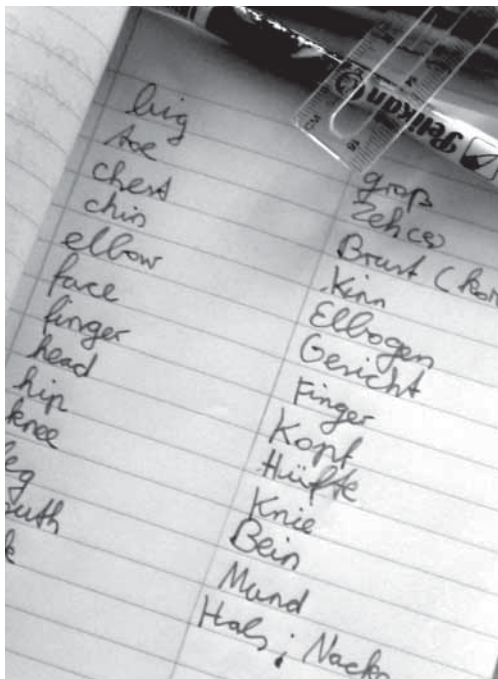 Pelikan
big groß
toe Zeh(e)
chest Brust (kör
chin Kinn
elbow Ellbogen
face Gesicht
finger Finger
head Kopf
hip Hüfte
knee Knie
eg Bein
outh Mund
k Hals; Nacke